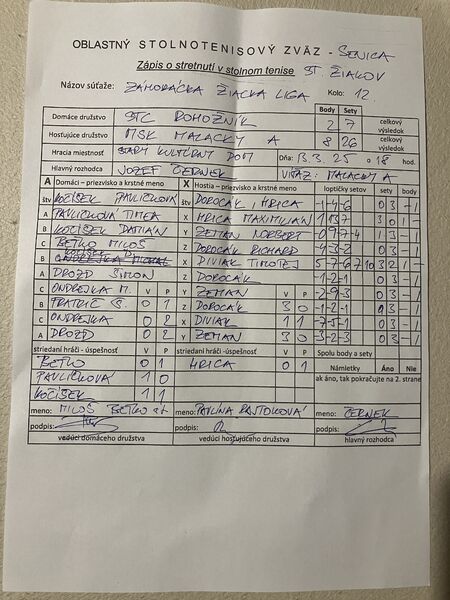 OBLASTNÝ STOLNOTENISOVÝ ZVÄZ - SENICA
Zápis o stretnutí v stolnom tenise ST. ŽIAKOV
Názov súťaže: ZÁHORÁCKA ŽIACKA LIGA Kolo: 12.
Body Sety
Domáce družstvo STC ROHOŽNÍK 2 7 celkový výsledok
Hosťujúce družstvo MSK MALACKY A 8 26 celkový výsledok
Hracia miestnosť STARÝ KULTÚRNY DOM Dňa: 13.3.25 o 18 hod.
Hlavný rozhodca JOZEF ČERNEK VÍŤAZ: MALACKY A
A Domáci – priezvisko a krstné meno X Hostia – priezvisko a krstné meno loptičky setov sety body
štv KOČÍŠEK PAVLIČKOVÁ štv DOROČÁK HRICA -1-4-6 0 3 - 1
A PAVLIČKOVÁ TIMEA X HRICA MAXIMILIÁN 1 1 3 7 3 0 1 -
B KOČÍŠEK DAMIÁN Y ZEMAN NORBERT 1 3 - 1
C BETKO MILOŠ Z DOROČÁK RICHARD -4-3-2 0 3 - 1
B X DIVIAK TIMOTEJ 5-7-6 7 10 3 2 1 -
A DROZD ŠIMON Z DOROČÁK -1-2-1 0 3 - 1
C ONDREJKA M. V P Y ZEMAN V P -2-9-3 0 3 - 1
B 0 1 Z DOROČÁK 3 0 -1-2-1 0 3 - 1
C ONDREJKA 0 2 X DIVIAK 1 1 -7-5-1 0 3 - 1
A DROZD 0 2 Y ZEMAN 3 0 -3-2-3 0 3 - 1
striedaní hráči - úspešnosť V P striedaní hráči -úspešnosť V P Spolu body a sety
BETKO 0 1 HRICA 0 1 Námietky Áno Nie
PAVLIČKOVÁ 1 0 ak áno, tak pokračujte na 2. strane
KOČÍŠEK 1 1
meno: MILOŠ BETKO st meno: PAULÍNA RAJTOKOVÁ meno: ČERNEK
podpis: podpis: podpis:
vedúci domáceho družstva vedúci hosťujúceho družstva hlavný rozhodca